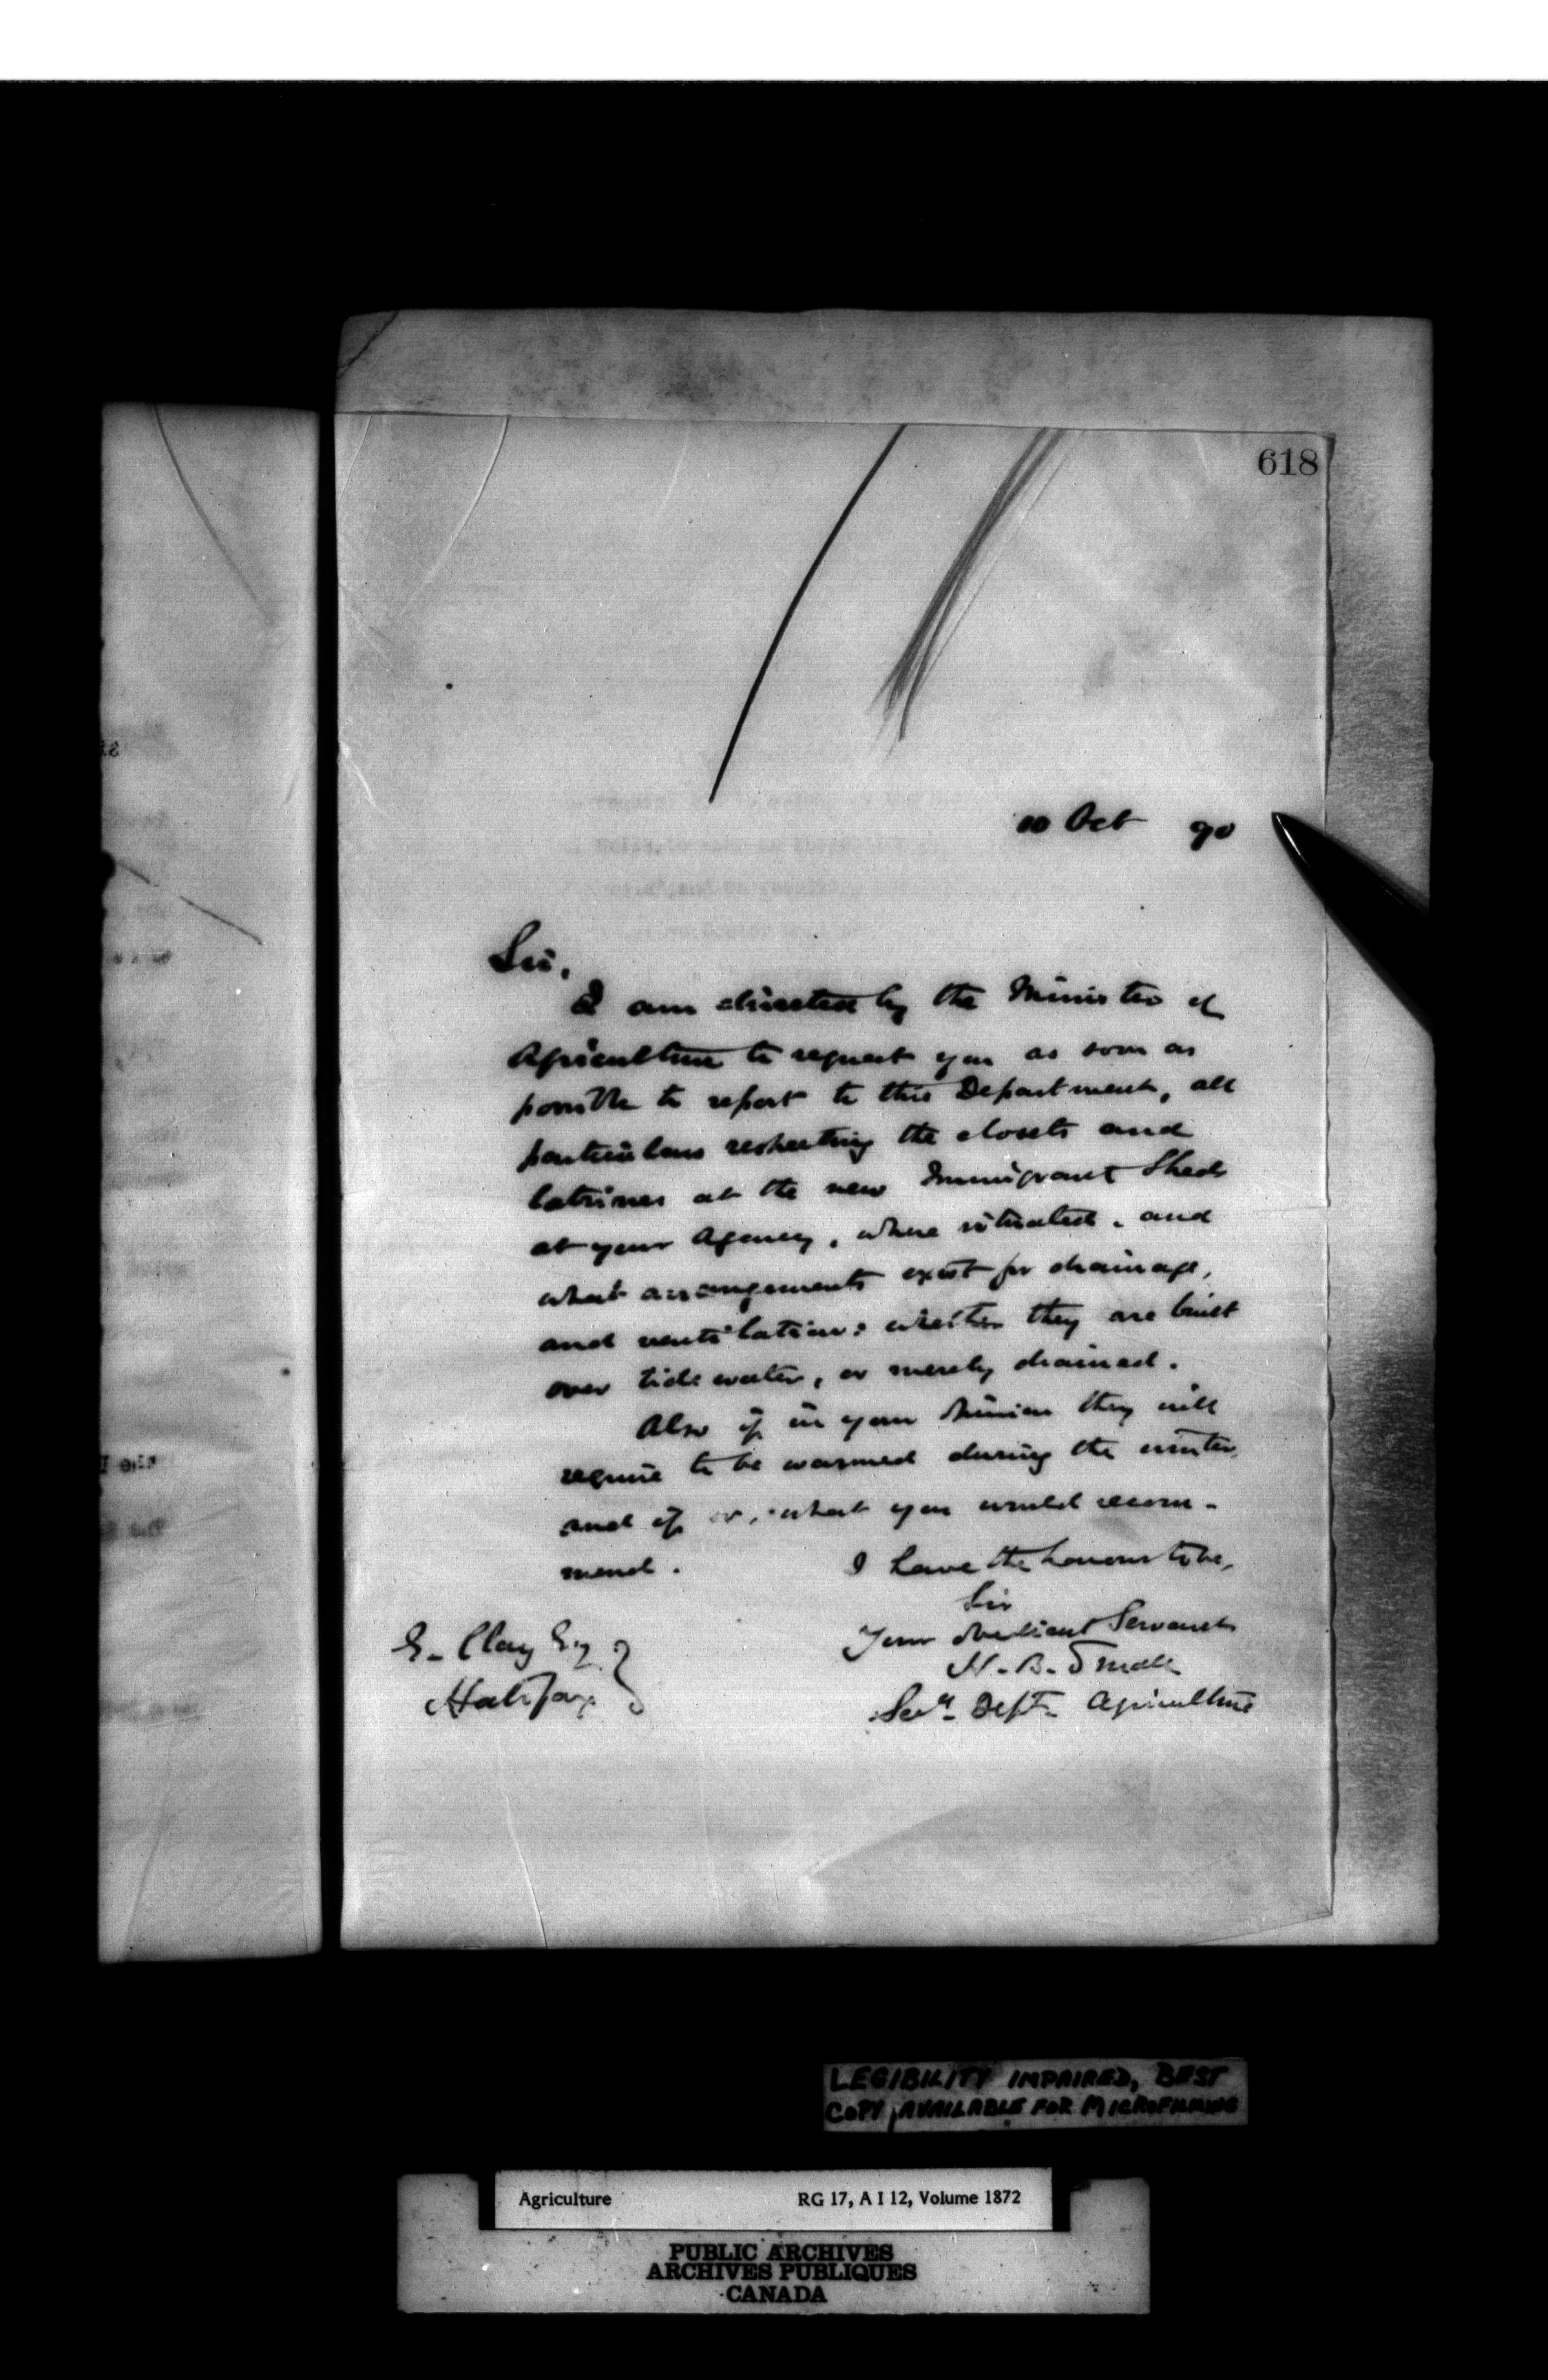 618
10 Oct 90
Sir,
I am directed by the Minister of
Agriculture to request you as soon as
possible to report to this Department, all
particulars respecting the closets and
latrines at the new Immigrant Sheds
at your Agency, where situated, and
what arrangements exist for drainage,
and ventilation: whether they are built
over tide water, or merely drained.
Also if in your opinion they will
require to be warmed during the winter,
and if so, what you would recom-
mend.
I have the honour to be,
Sir
Your obedient Servant
H. B. Small
Secy. Dept. Agriculture
E. Clay Esq
Halifax
LEGIBILITY IMPAIRED, BEST
COPY AVAILABLE FOR MICROFILMING
Agriculture RG 17, A I 12, Volume 1872
PUBLIC ARCHIVES
ARCHIVES PUBLIQUES
CANADA